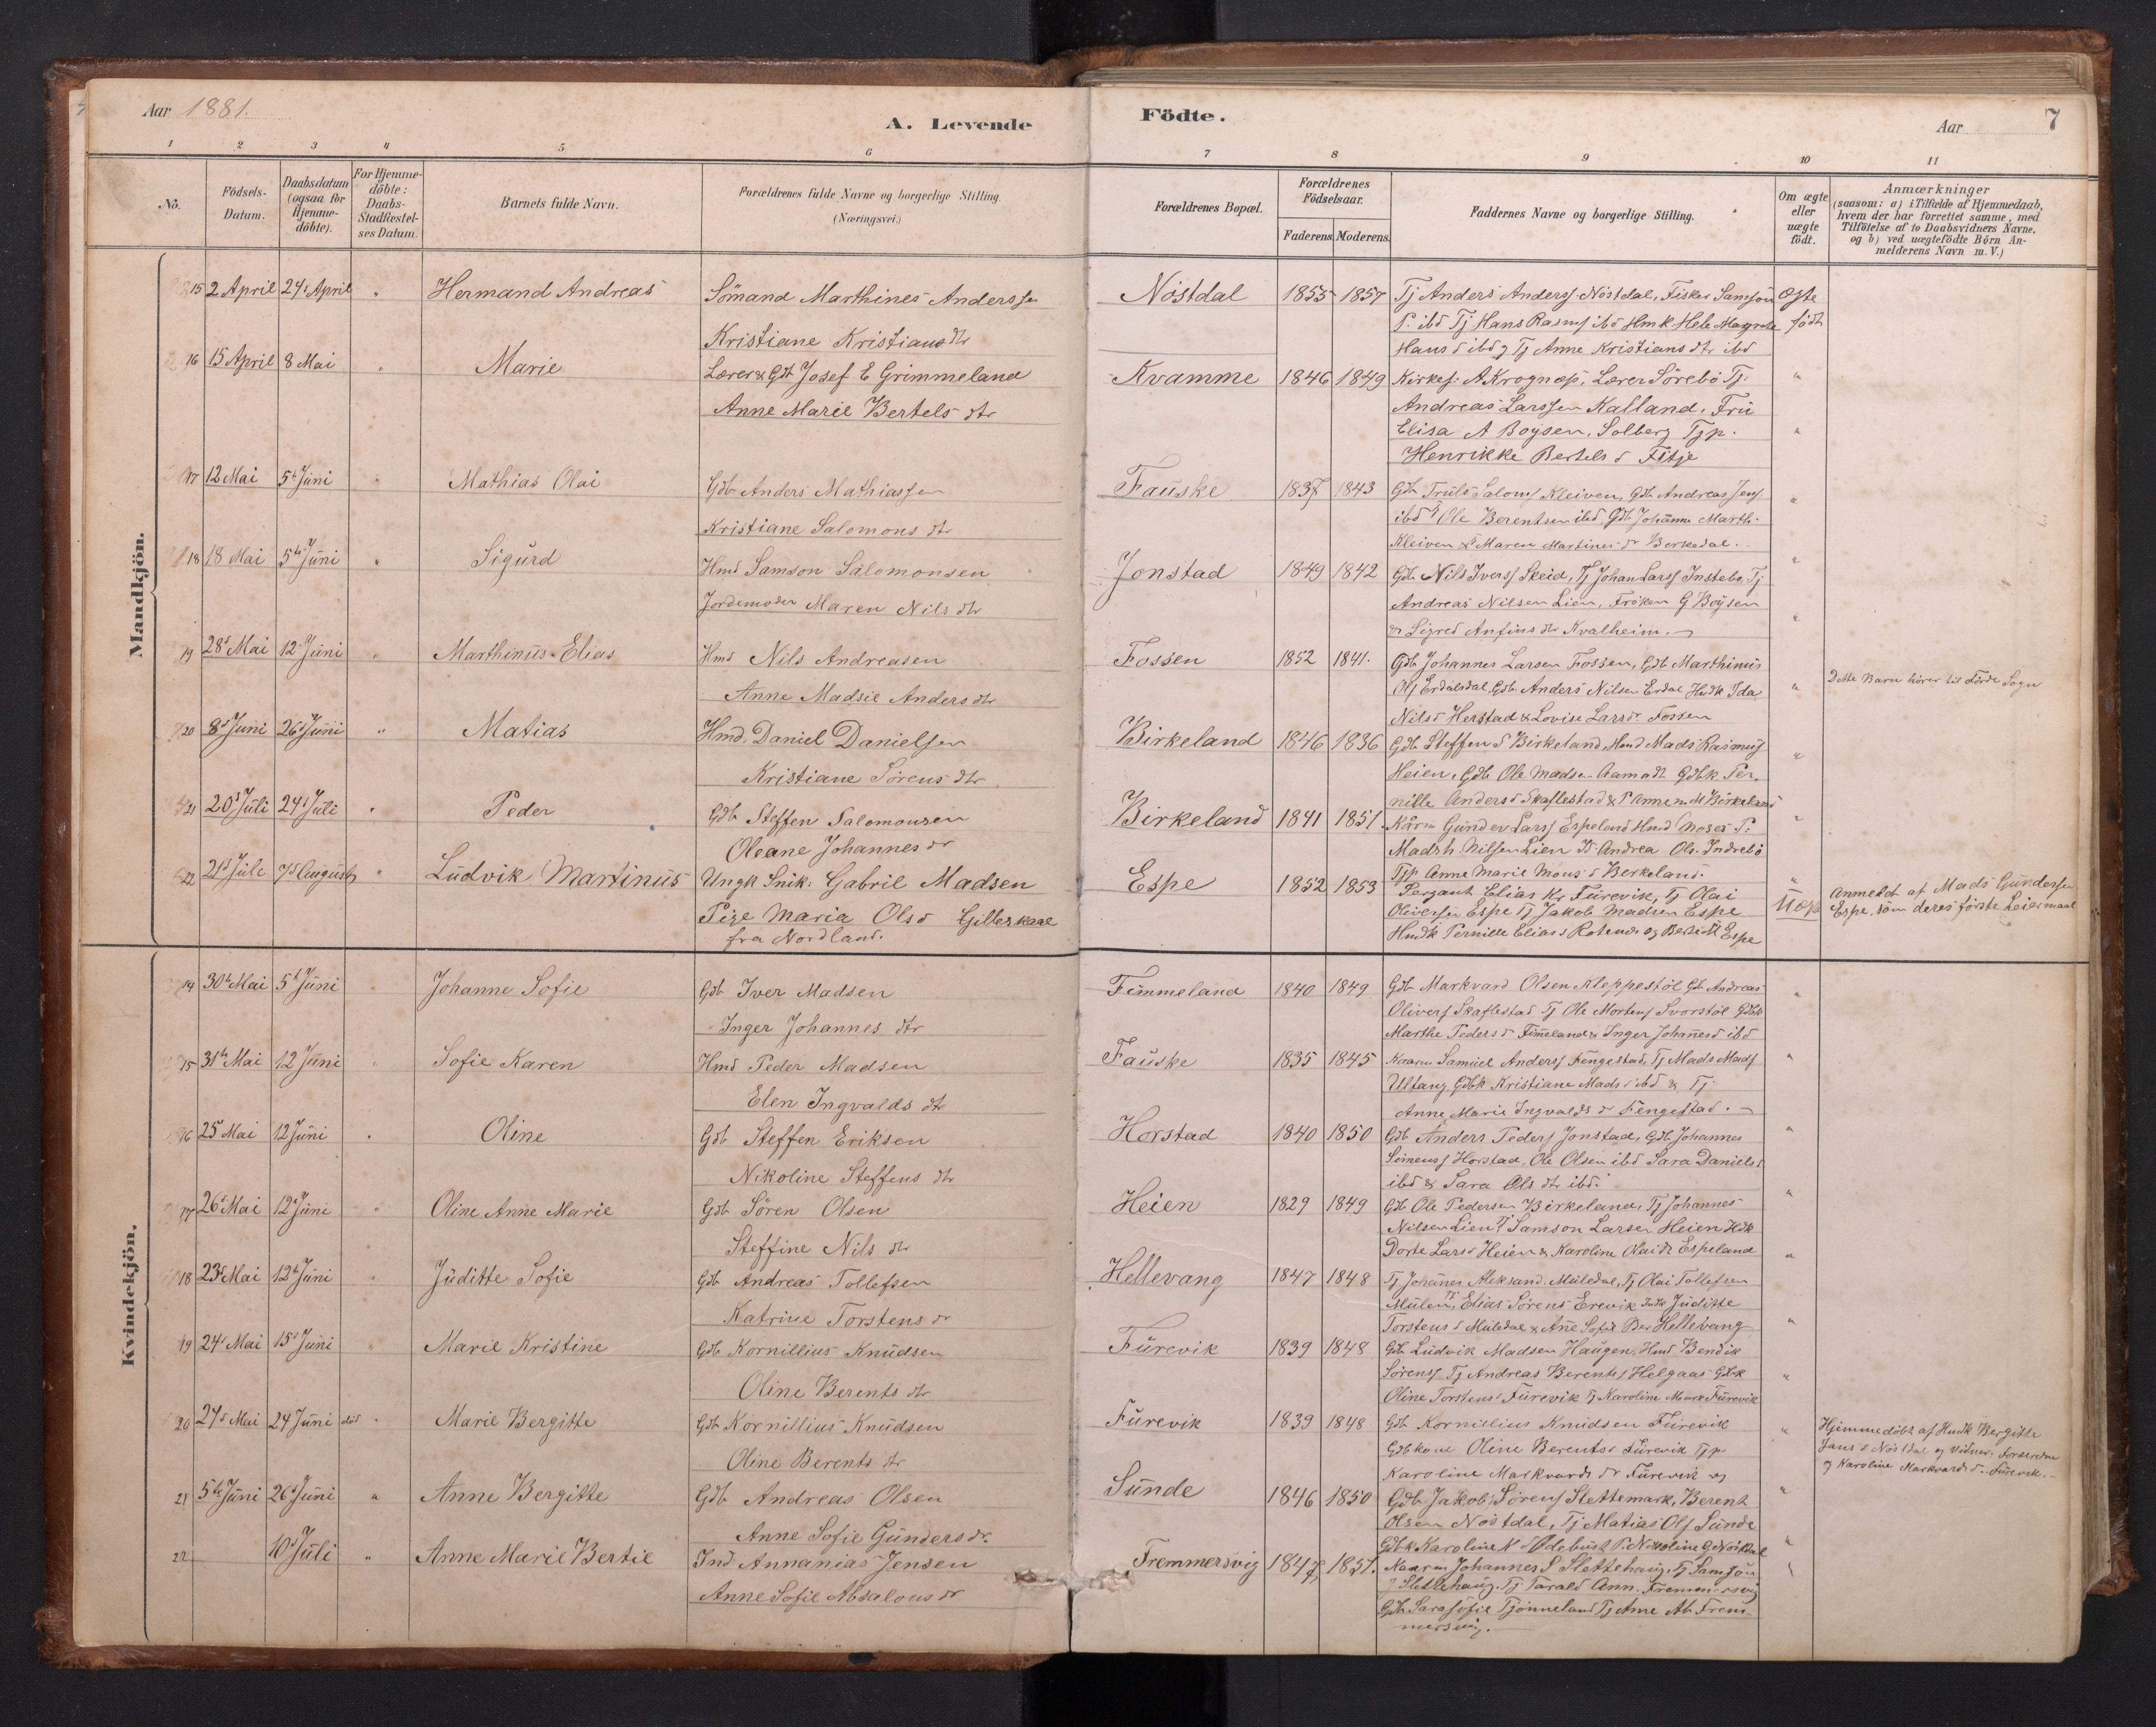 Aar 1881.
A. Levende Födte.
Aar 7
1 2 3 4 5 6 7 8 9 10 11
No.
Födsels-Datum.
Daabsdatum (ogsaa for Hjemmedöbte).
For Hjemmedöbte: Daabs-Stadfæstelses Datum.
Barnets fulde Navn.
Forældrenes fulde Navne og borgerlige Stilling. (Næringsvei.)
Forældrenes Bopæl.
Forældrenes Födselsaar.
Faderens Moderens
Faddernes Navne og borgerlige Stilling.
Om ægte eller uægte födt.
Anmærkninger (saasom: a) i Tilfælde af Hjemmedaab, hvem der har forrettet samme, med Tilföielse af to Daabsvidners Navne, og b) ved uægtefödte Börn Anmelderens Navn m. V.)
Mandkjön.
15 2 April 24 April " Hermand Andreas Sömand Marthines Anderssen Nöstdal 1855 1857 Tj Anders Anderss Nöstdal, Fisker Samson Ægte
P. ibd Tj Hans Rasmuss ibd Hmk Hele Magrete födt
Kristiane Kristians dtr Hans d ibd og Tj Anne Kristians dtr ibd
16 15 April 8 Mai " Marie Lærer & Gdb Josef E Grimmeland Kvamme 1846 1849 Kirkes. A Krognæs, Lærer Sörebö Tj. "
Anne Marie Bertels dtr Andreas Larssen Kalland, Fru
Elisa A Boysen, Solberg Tjp. "
Henrikke Bertels d Fitje
17 12 Mai 5 Juni " Mathias Olai Gdb Anders Mathiassen Fauske 1837 1843 Gdb Truls Saloms Kleiven, Gdb Andreas Jens "
ibd Ole Berentsen ibd Gdb Johanna Marth.
Kristiane Salomons dtr Kleiven & Maren Martines dr Berkedal.
18 18 Mai 5 Juni " Sigurd Hmd Samson Salomonsen Jonstad 1849 1842 Gdb Nils Iverss Skeid, Tj Johan Larss Instebö, Tj "
Jordemoder Maren Nils dtr Andreas Nilsen Lien, Fröken G Boysen
& Sigred Anfins dtr Kvalheim. "
19 28 Mai 12 Juni " Marthinus Elias Hmd Nils Andreasen Fossen 1852 1841. Gdb Johannes Larsen Fossen, Gdb Marthinus
Anne Madsie Anders dtr Ols Erdalsdal, Gdb Anders Nilsen Erdal Hmdk Ida " Dette Barn hörer til Förde Sogn
Nils d Herstad & Lovise Lars dr Fossen
20 8 Juni 26 Juni " Matias Hmd. Daniel Danielsen Birkeland 1846 1836 Gdb Steffen S Birkeland, Hmd Mads Rasmus "
Kristiane Sörens dtr Heien, Gdb Ole Madsen Aamodt Gdbk Per
nille Anders d Skaflestad & P Anne M Birkeland
21 20 Juli 24 Juli " Peder Gdb Steffen Salomonsen Birkeland 1841 1851 Kårm Gunder Larss Espeland Hmd Moses P. "
Oleane Johannes dr Mads h Nilsen Lien Andrea Ols. Indrebö
Tjp Anne Marie Mons d Berkeland.
22 21 Juli 7 August " Ludvik Martinus Ungk Snik: Gabril Madsen Espe 1852 1853 Sergant Elias Kr Furevik, Tj Olai Uægte Anmeldt af Mads Gundersen
Pige Maria Ols d Gilleskaal Oliversen Espe Tj Jakob Madsen Espe Espe, som deres förste Leiermaal
fra Nordland. Hmdk Pernille Elias d og Espe
Kvindekjön.
14 30 Mai 5 Juni Johanne Sofie Gdb Iver Madsen Fimmeland 1840 1849 Gdb Markvard Olsen Kleppestöl Gdb Andreas "
Inger Johannes dtr Olivers Skaflestad Tj Ole Mortens Svorstöl Gdbk
Marthe Peders d Fimmeland & Inger Johannes d ibd
15 31 Mai 12 Juni Sofie Karen Hmd Peder Madsen Fauske 1835 1845 Kaarm Samuel Anders Fengestad, Tj Mads Mads "
Elen Ingvalds dtr Ultang Gdbk Kristiane Mads d ibd & Tj.
Anne Marie Ingvalds dr Fengestad.
16 25 Mai 12 Juni " Oline Gdb Steffen Eriksen Horstad 1840 1850 Gdb Anders Peders Jonstad, Gdb Johannes "
Nikoline Steffens dtr Horstad, Ole Olsen ibd Sara Daniels d
ibd & Sara Ols dtr ibd.
17 26 Mai 12 Juni " Oline Anne Marie Gdb Sören Olsen Heien 1829 1849 Gdb Ole Pedersen Birkeland, Tj Johannes "
Steffine Nils dtr Nilsen Lien Tj Samson Larsen Heien Hdk
Dorte Lars d Heien & Karoline Olai dr Espeland
18 23 Mai 12 Juni " Juditte Sofie Gdb Andreas Tollefsen Hellevang 1847 1848 Tj Johanes Aleksand. Muledal, Tj Olai Tollefsen "
Katrine Torstens dr Mulen, Elias Sörens Erevik Juditte
Torstens d Muledal & Ane Sofie Hellevang "
19 24 Mai 15 Juni Marie Kristine Gdb Kornillius Knudsen Furevik 1839 1848 Gdb Ludvik Madsen Haugen, Hmd Bendik
Oline Berents dtr Sörens, Tj Andreas Berents Helgaas Gdbk "
Oline Torstens d Furevik Tj Karoline Mark Furevik
20 24 Mai 24 Juni död " Marie Bergitte Gdb Kornillius Knudsen Furevik 1839 1848 Gdb Kornillius Knudsen Furevik " Hjemmedöbt af Hmdk Bergitte
Oline Berents dtr Gdbkone Oline Berents d Furevik Tjp. Jans d Nöstdal og Vidner: Forældre
Karoline Markvards dr Furevik og Karoline Markvards d. Furevik.
21 5 Juni 26 Juni " Anne Bergitte Gdb Andreas Olsen Sunde 1846 1850 Gdb Jakob Sörens Slettemark, Berent "
Anne Sofie Gunders dr. Olsen Nöstdal, Tj Matias Ols Sunde
Gdbk Karoline N d Ödebust P. Nikoline G Nöstdal
22 10 Juli " Anne Marie Bertie Ind Annanias Jensen Fremmersvig 1847 1851. Kaarm Johannes S Slettehaug, Tj Samson
Anne Sofie Absalons dr Slettehaug. Tj Tarald Ann. Fremmersvig
Gdb Sara Sofie Tjönneland Tj Ane Ab Frem-
mersvig.